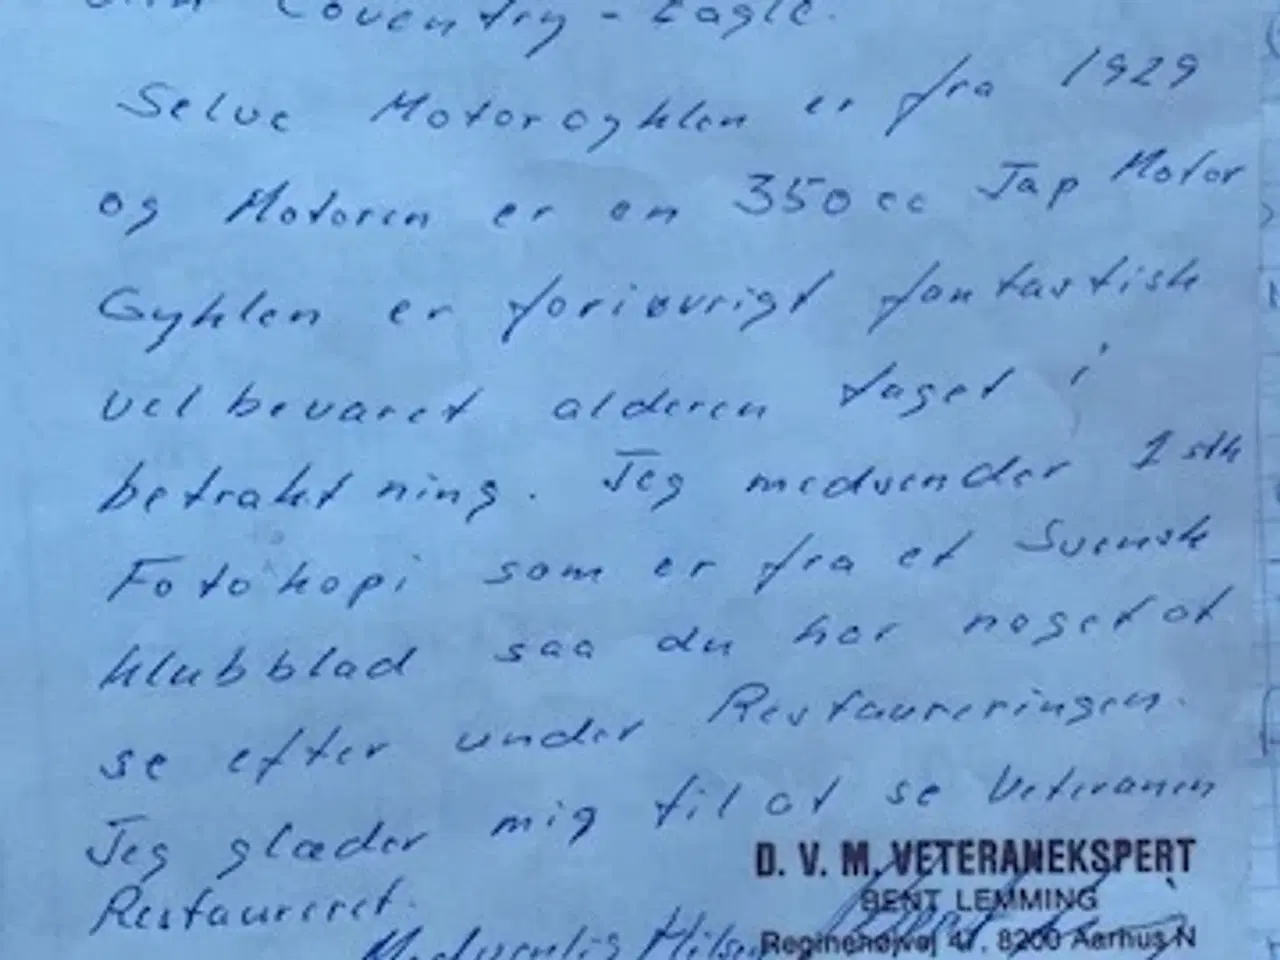 Coventry - Eagle.
Selve Motorcyklen er fra 1929
og Motoren er en 350 cc Jap Motor
Cyklen er foriøvrigt fantastisk
velbevaret alderen taget i
betraktning. Jeg medsender 1 stk
Fotokopi som er fra et Svensk
klubblad saa du har noget at
se efter under Restaureringen.
Jeg glæder mig til at se Veteranen
Restaureret.
Medvenlig Hilsen
D. V. M. VETERANEKSPERT
BENT LEMMING
Reginehøjvej 47. 8200 Aarhus N